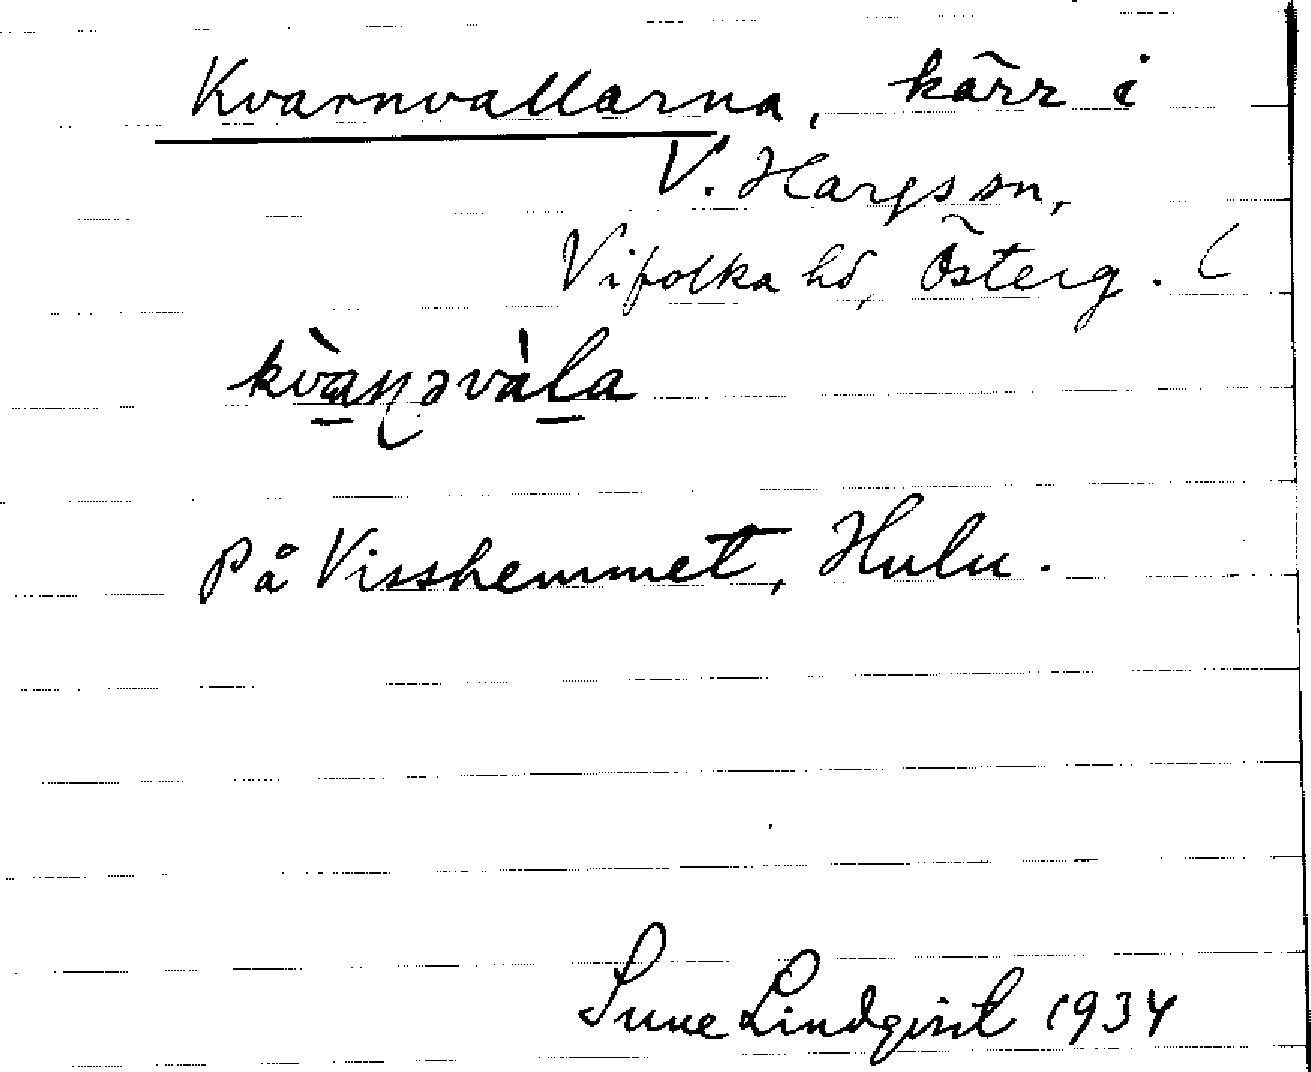 Kvarnvallarna, kärr i
V. Hargs sn,
Vifolka hd, Österg.
På Visshemmet, Hulu.
Sune Lindqvist 1934